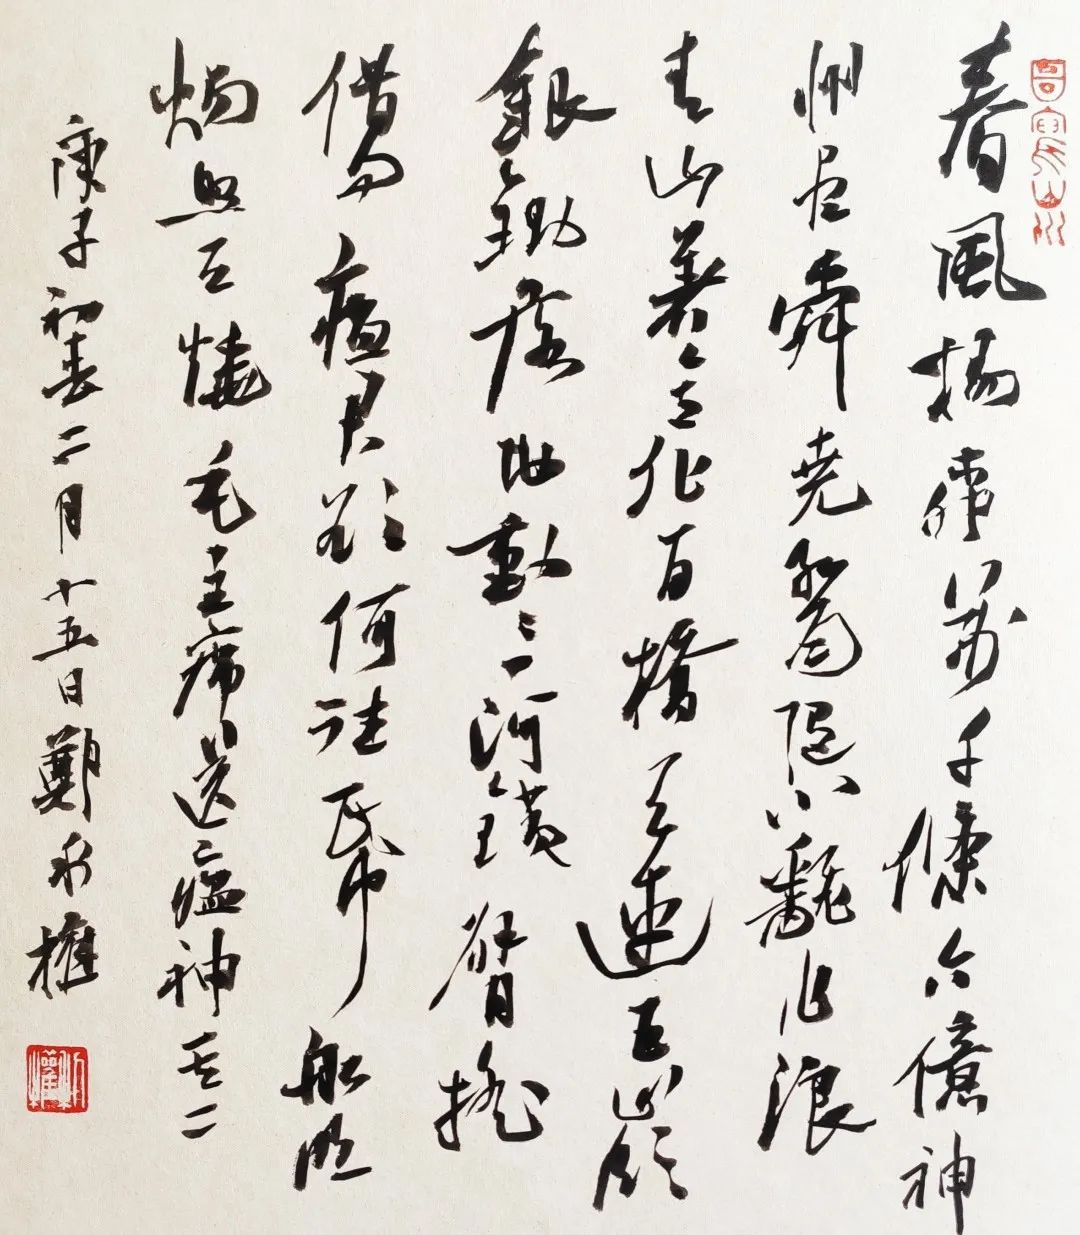 春風楊柳萬千條六億神
州尽舜尧紅雨随心翻作浪
青山着意化为橋天連五嶺
銀鋤落地動三河鐵臂摇
借问瘟君欲何往帋船明
燭照天燒毛主席送瘟神其二
庚子初春二月十五日鄭永權